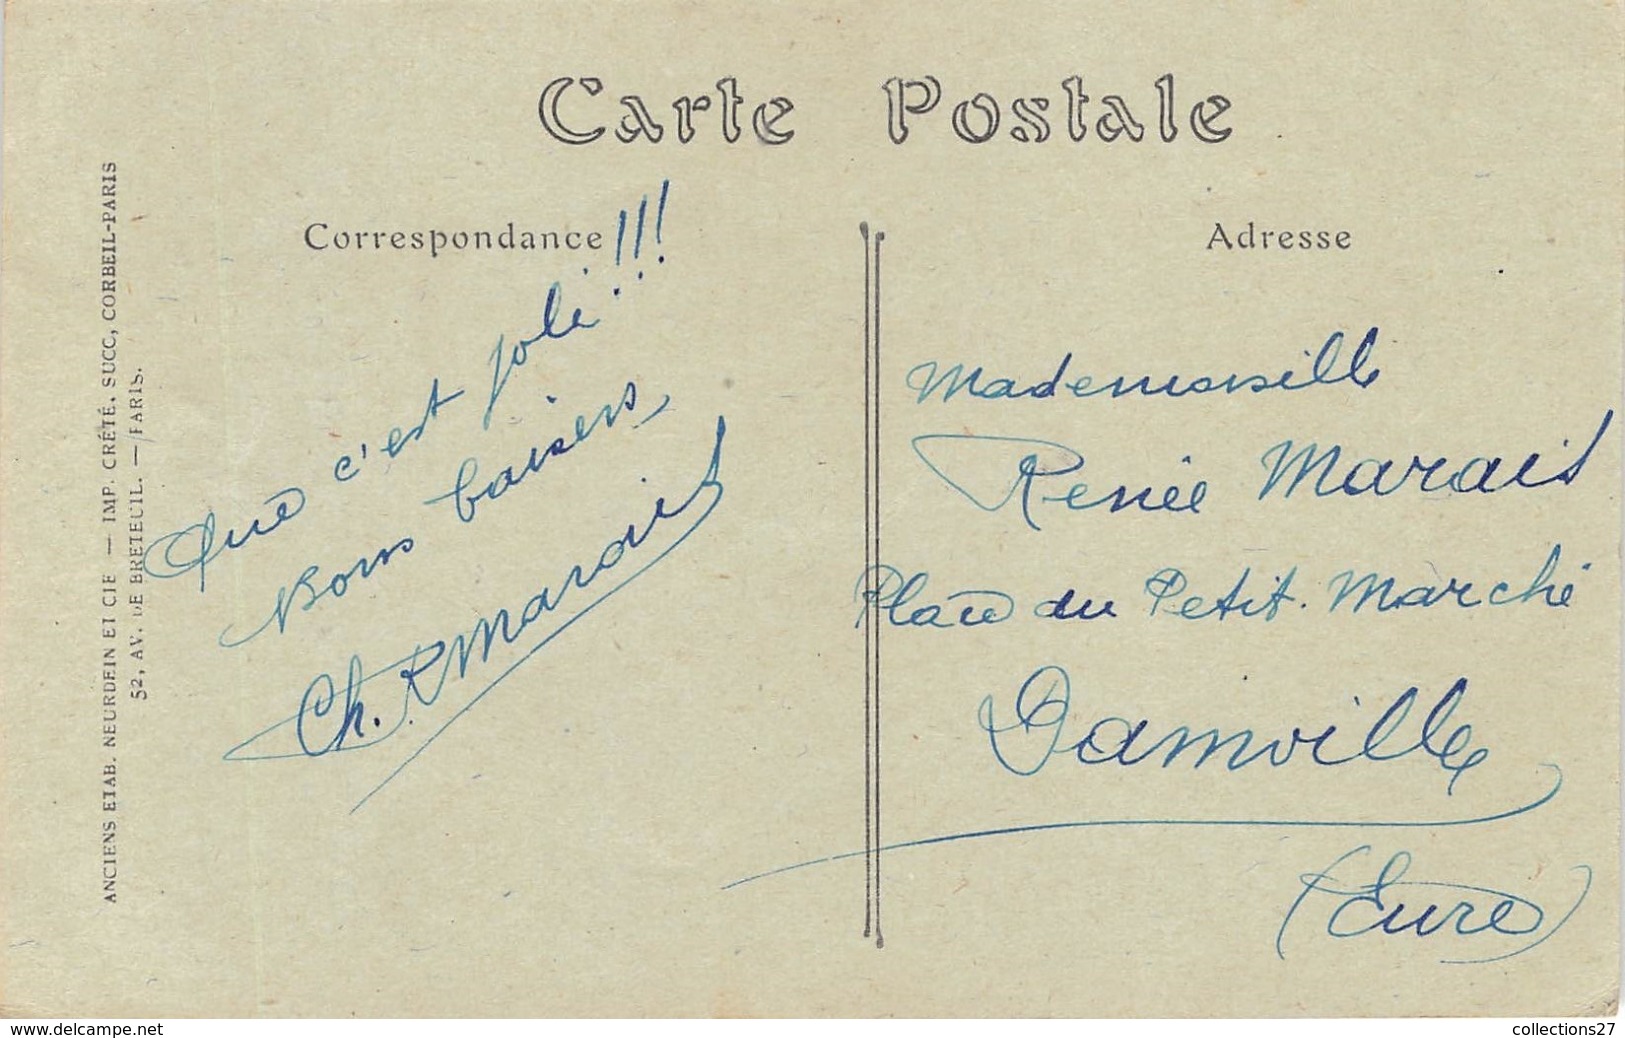 Carte Postale
Correspondance
Adresse
ANCIENS ETAB. NEURDEIN ET CIE — IMP. CRÉTÉ. SUCC, CORBEIL-PARIS
52, AV. DE BRETEUIL. — PARIS.
Que c'est joli!!!
Bons baisers
Ch. Marais
Mademoiselle
Renée Marais
Place du Petit Marché
Damville
(Eure)
www.delcampe.net
collections27